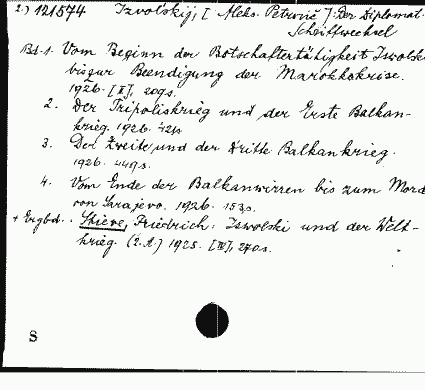 2.) 121574 Izvolskij, [Aleks. Petrovič]: Der Diplomat.
Schriftwechsel
Bd. 1. Vom Beginn der Botschaftertätigkeit Iswolsk
bis zur Beendigung der Marokkokrise.
1926. [II], 209 s.
2. Der Tripoliskrieg und der Erste Balkan-
krieg. 1926. 424 s.
3. Der Zweite und der Dritte Balkankrieg.
1926. 449 s.
4. Vom Ende der Balkanwirren bis zum Mord
von Sarajevo. 1926. 153 s.
+ Ergbd. Stieve, Friedrich: Iswolski und der Welt-
krieg. (2. A.) 1925. [IV], 270 s.
S